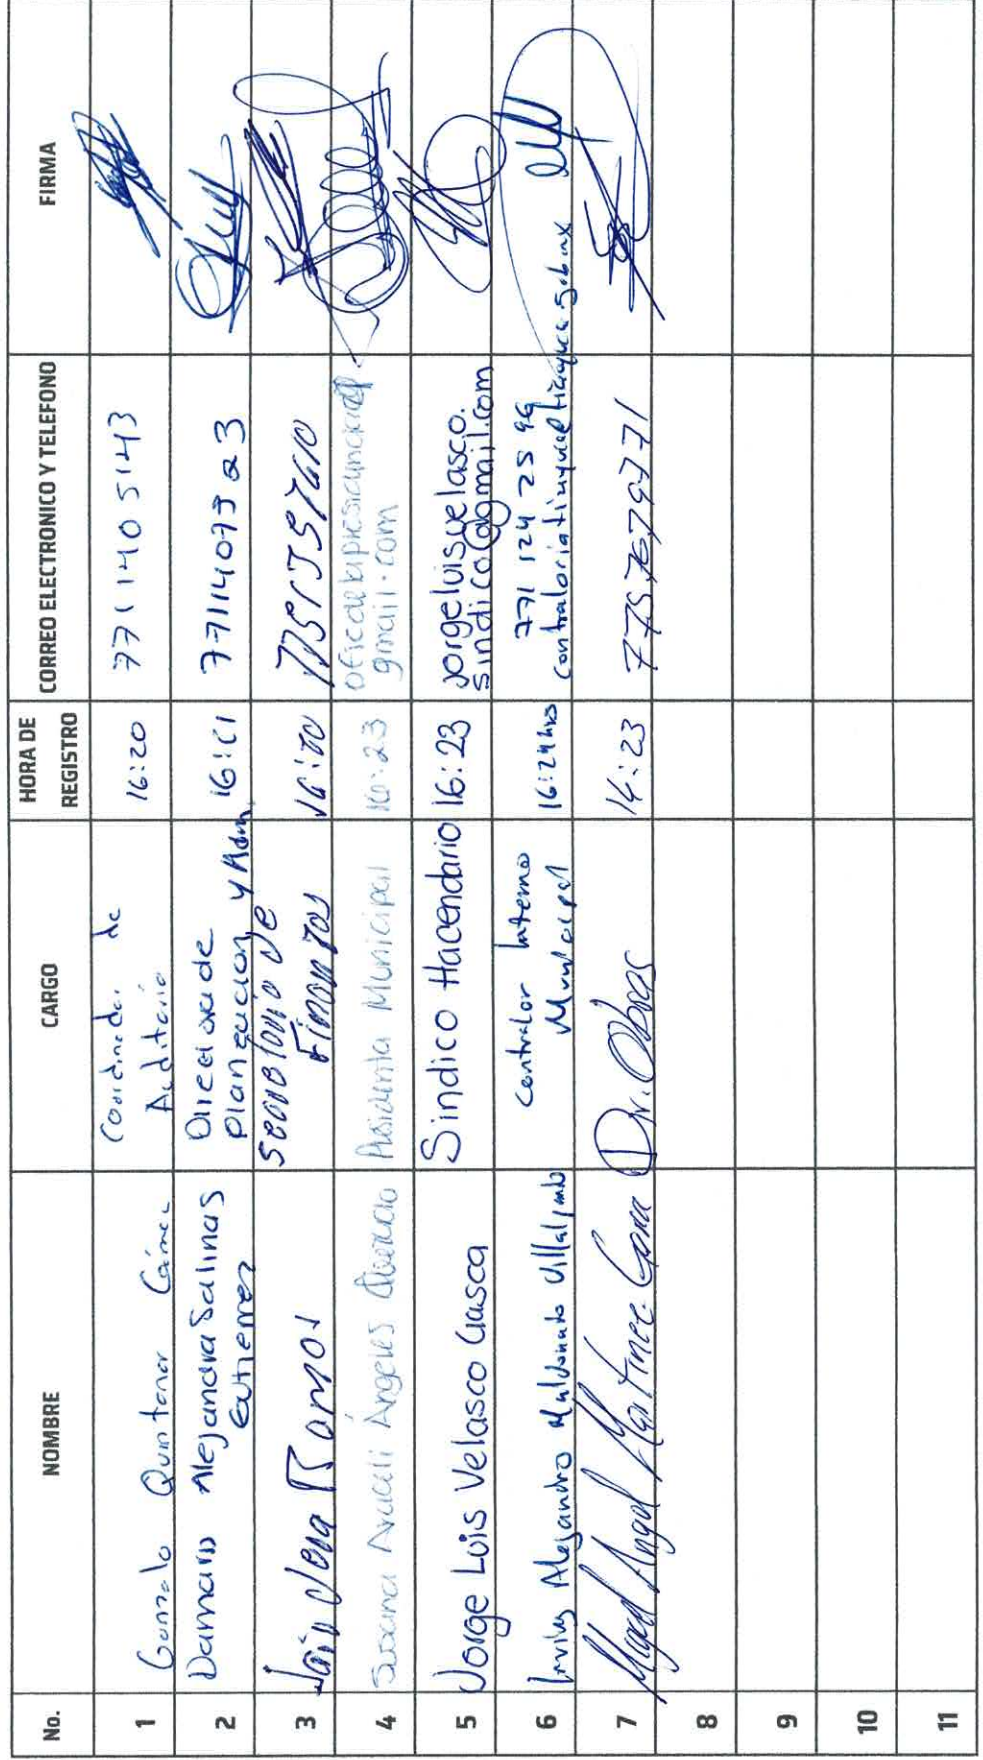 No. NOMBRE CARGO HORA DE REGISTRO CORREO ELECTRONICO Y TELEFONO FIRMA
1 Gonzalo Quintanar Gámez Coordinador de Auditoría 16:20 771 140 5143
2 Damaris Alejandra Salinas Gutierrez Directora de Planeacion y Adm. 16:21 7711407323
3 Vera Ramos Secretario de Finanzas
4 Susana Araceli Ángeles Presidenta Municipal 16:23 gmail.com
5 Jorge Luis Velasco Gasca Sindico Hacendario 16:23 jorgeluisvelasco.
sindico@gmail.com
6 Irving Alejandro Maldonado Villalpando Contralor Interno Municipal 16:24 hrs 771 124 25 99
7 Angel Martinez Dir. Obras 16:23
8
9
10
11